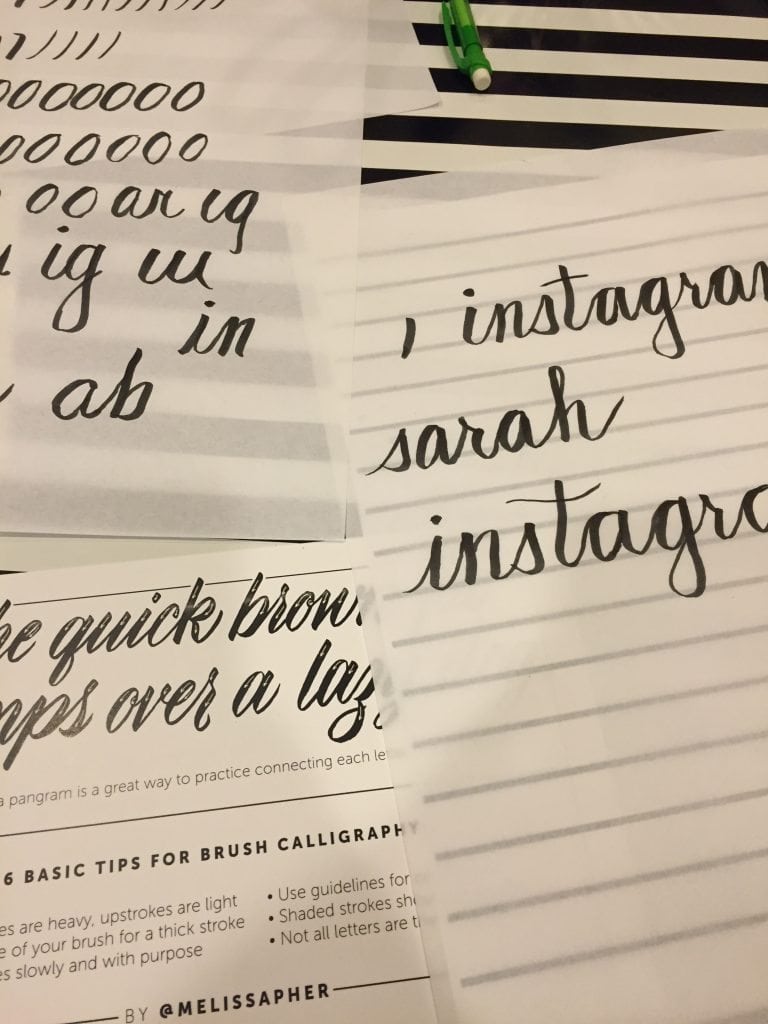 ooooooo
ooooooo
o o an ig
ig u
in
ab
, instagram
sarah
instagra
he quick brown
mps over a lazy
a pangram is a great way to practice connecting each le
6 BASIC TIPS FOR BRUSH CALLIGRAPHY
es are heavy, upstrokes are light
e of your brush for a thick stroke
es slowly and with purpose
• Use guidelines for
• Shaded strokes sh
• Not all letters are t
BY @MELISSAPHER